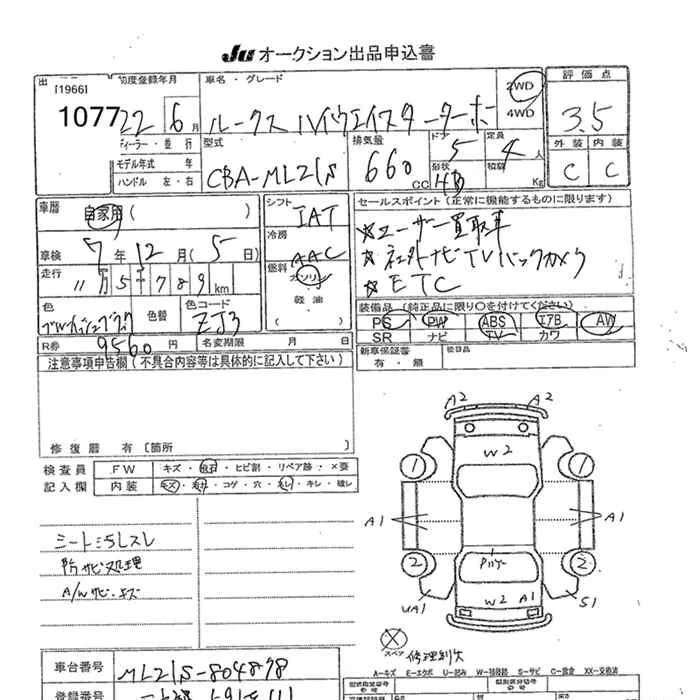 Ju オークション出品申込書
出 初度登録年月 車名・グレード 2WD 評価点
[1966]
1077 22 6月 ルークス ハイウェイスターターボ 4WD 3.5
ディーラー・並行 型式 排気量 ドア 定員 外装 内装
モデル年式 年 CBA-ML21S 660 CC 5 4人 C C
ハンドル 左・右 形状 4B 積載 Kg
車暦 自家用( ) シフト IAT セールスポイント(正常に機能するものに限ります)
冷房 AAC ☆ユーザー買取車
車検 7年 12月(5日) ☆ナビTVバックカメラ
走行 11万5789km 燃料 ガソリン ☆ETC
軽油
( )
色 色替 色コード ZJ3 装備品(純正品に限り○を付けてください)
PS PW ABS エアB AW
SR ナビ TV カワ
R券 9560円 名変期限 月 日 新車保証書 後日品
有・無
注意事項申告欄(不具合内容等は具体的に記入して下さい)
修復歴 有[箇所 ]
検査員 FW キズ・飛石・ヒビ割・リペア跡・×要
記入欄 内装 キズ・汚れ・コゲ・穴・スレ・キレ・破レ
シートミちスレ
防サビ処理
A/Wサビ・キズ
A2 A2
W2
1 1
A1 A1
2 2
UA1 W2 A1 S1
スペア 修理剤欠
A-キズ E-エクボ U-凹み W-補修跡 S-サビ C-腐食 XX-交換済
車台番号 ML21S-804878
登録番号